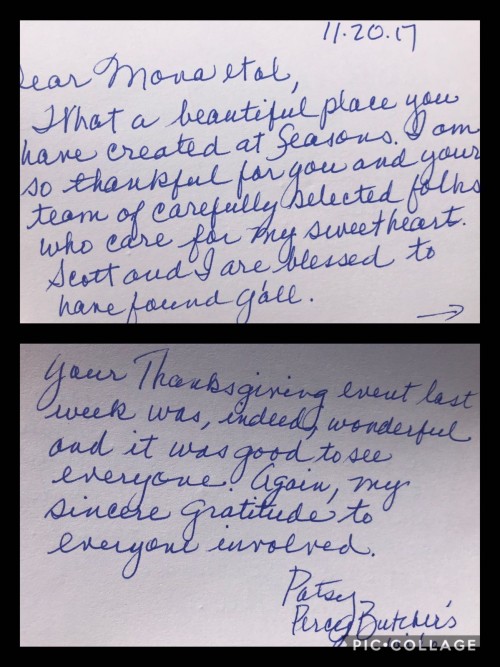 11.20.17
Dear Mona et al,
What a beautiful place you
have created at Seasons. I am
so thankful for you and your
team of carefully selected folks
who care for my sweetheart.
Scott and I are blessed to
have found y'all.
Your Thanksgiving event last
week was, indeed, wonderful
and it was good to see
everyone! Again, my
sincere gratitude to
everyone involved.
Patsy
Percy Butcher's
PIC•COLLAGE